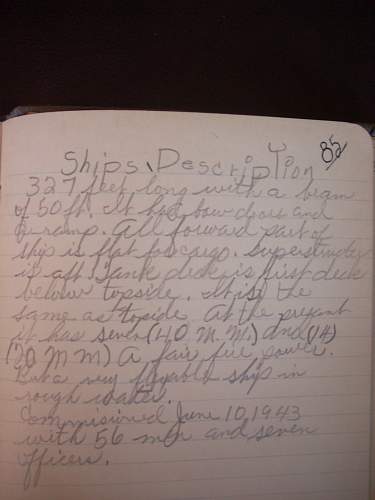 82
Ships Description
327 feet long with a beam
of 50 ft. It has bow doors and
ramp. All forward part of
ship is flat for cargo. Superstructure
is aft. Tank deck is first deck
below topside. It is the
same as topside. At the present
it has seven (40 M.M.) and (14)
(20 M M) A fair fire power.
But a very flexable ship in
rough water.
Commisioned June 10, 1943
with 56 men and seven
officers.